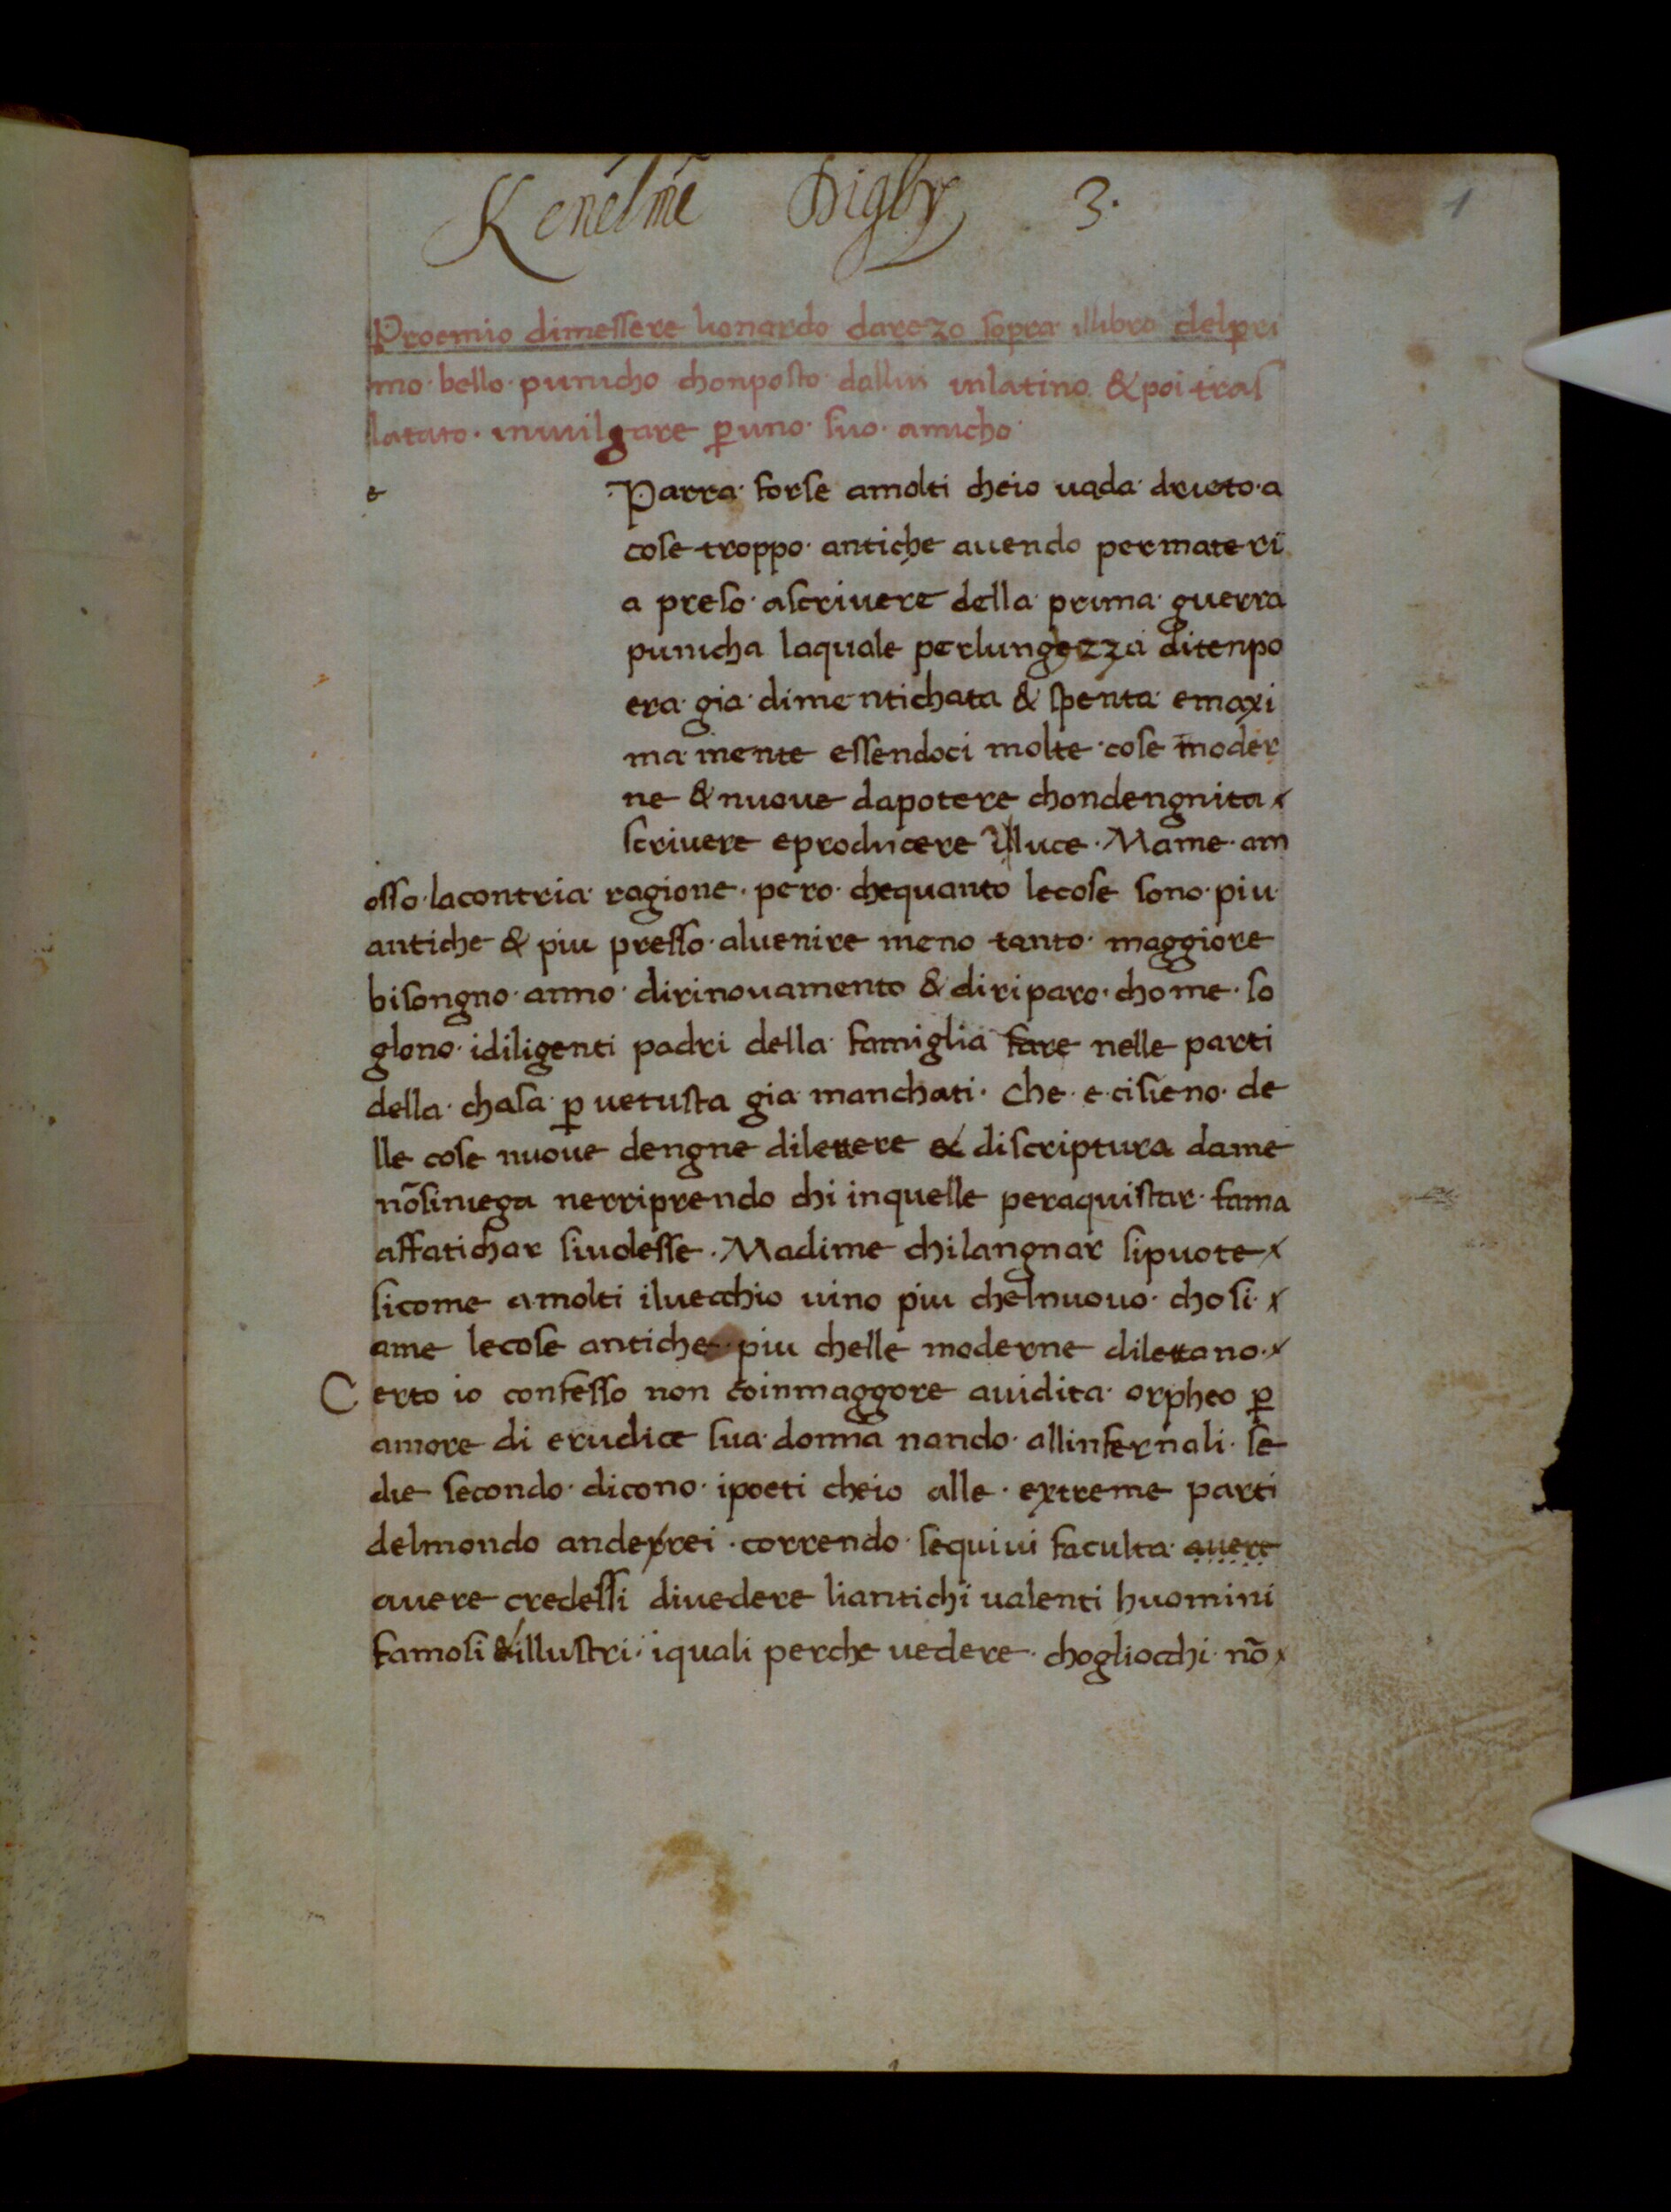 Kenelme Digby 3. 1
Proemio dimessere lionardo darezo sopra illibro delpri
mo · bello · punicho chonposto · dallui inlatino & poi tras
latato · inuulgare ꝑ uno · suo · amicho
e
Parra · forse amolti cheio uada · drieto · a
cose troppo · antiche auendo permateri
a preso · ascriuere della · prima · guerra
punicha laquale perlunghezza ditenpo
era · gia · dimentichata & spenta · emaxi
ma mente essendoci molte · cose moder
ne & nuoue dapotere chondengnita
scriuere eproducere īluce · Mame · am
osso · lacontria · ragione · pero · chequanto lecose sono · piu ·
antiche & piu presso · aluenire meno tanto · maggiore
bisongno · anno · dirinouamento & diriparo · chome · so
glono · idiligenti padri della · famiglia fare nelle parti
della · chasa · ꝑ uetusta gia · manchati · che · e · cisieno · de
lle cose nuoue dengne dilettere & discriptura dame
nōsiniega nerriprendo chi inquelle peraquistar · fama
affatichar siuolesse · Madime chilangnar sipuote
sicome amolti iluecchio uino piu chelnuouo · chosi ·
ame lecose antiche · piu chelle moderne dilettano ·
Certo io confesso non coinmaggore auidita · orpheo ꝑ
amore di erudice sua · donna nando · allinfernali · se
die secondo · dicono · ipoeti cheio alle · extreme parti
delmondo anderrei · correndo · sequiui faculta · auere
auere credessi diuedere liantichi ualenti huomini
famosi & illustri · iquali perche uedere · chogliocchi · nō